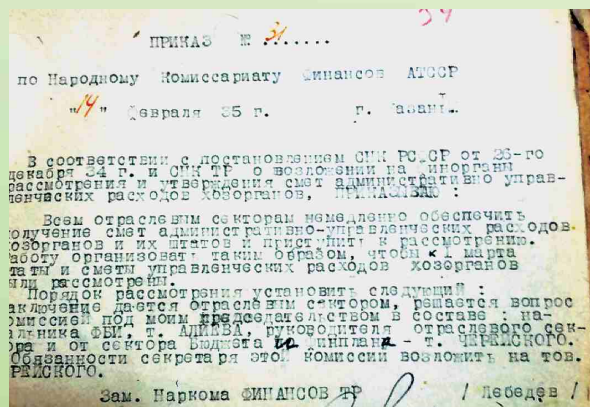 34
ПРИКАЗ № 31.......
по Народному Комиссариату Финансов АТССР
"14" февраля 35 г. г. Казань.
В соответствии с постановлением СНК РСФСР от 26-го
декабря 34 г. и СНК ТР о возложении на финорганы
рассмотрения и утверждения смет административно управ-
ленческих расходов хозорганов, ПРИКАЗЫВАЮ :
Всем отраслевым секторам немедленно обеспечить
получение смет административно-управленческих расходов
хозорганов и их штатов и приступить к рассмотрению.
Работу организовать таким образом, чтобы к 1 марта
штаты и сметы управленческих расходов хозорганов
были рассмотрены.
Порядок рассмотрения установить следующий :
заключение дается отраслевым сектором, решается вопрос
комиссией под моим председательством в составе : на-
чальника ФБИ. т. АЛИЕВА, руководителя отраслевого сек-
тора и от сектора Бюджета и финплана - т. ЧЕРЕЙСКОГО.
Обязанности секретаря этой комиссии возложить на тов.
ЧЕРЕЙСКОГО.
Зам. Наркома ФИНАНСОВ ТР / Лебедев /